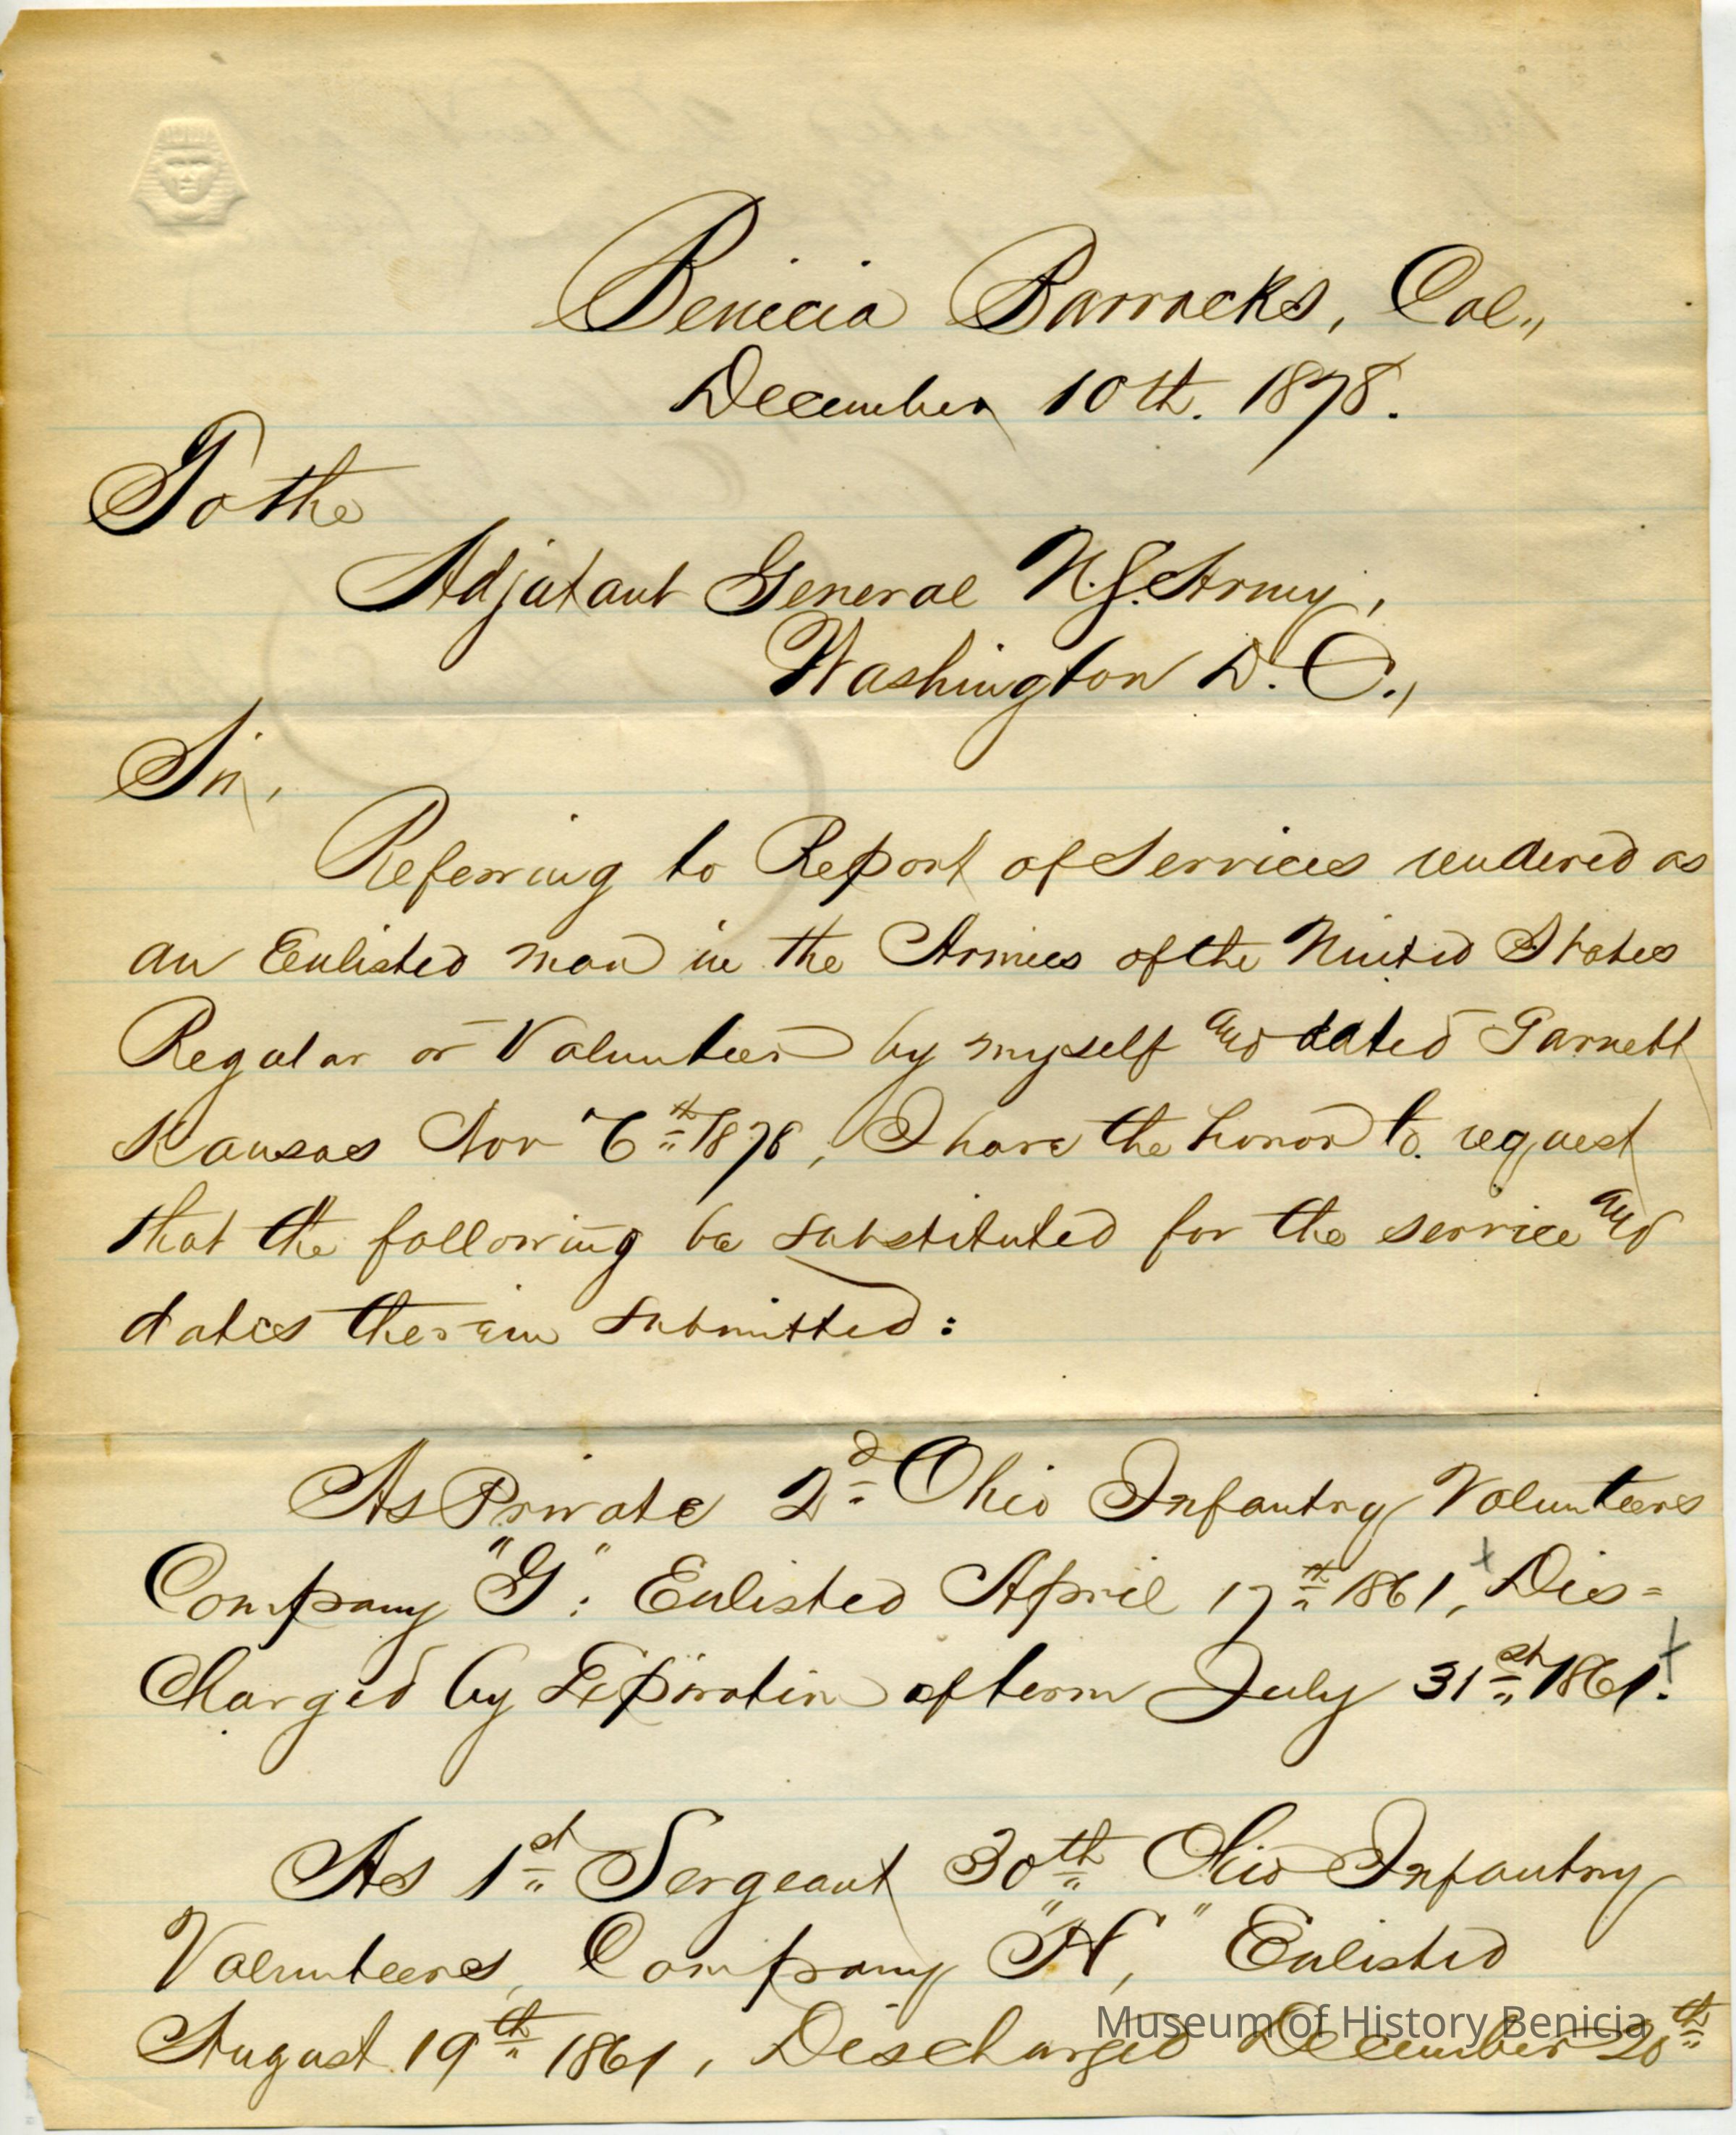 Benicia Barracks, Cal.,
December 10th. 1878.
To the
Adjutant General U.S. Army,
Washington D.C.,
Sir,
Referring to Report of Services rendered as
an Enlisted man in the Armies of the United States
Regular or Volunteer by myself and dated Garnett
Kansas Nov 6th 1878, I have the honor to request
that the following be substituted for the service and
dates therein submitted:
As Private 2d Ohio Infantry Volunteers
Company "G": Enlisted April 17th 1861, Dis=
charged by Expiration of term July 31st 1861.
As 1st Sergeant 30th Ohio Infantry
Volunteers, Company "H," Enlisted
August 19th 1861, Discharged December 20th
Museum of History Benicia